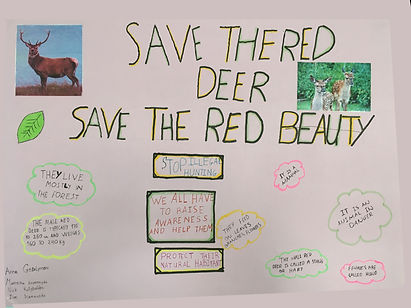 SAVE THE RED
DEER
SAVE THE RED BEAUTY
STOP ILLEGAL
HUNTING
IT IS A
MAMMAL
THEY LIVE
MOSTLY IN
THE FOREST
WE ALL HAVE
TO RAISE
AWARENESS
AND HELP THEM
IT IS AN
ANIMAL IN
DANGER
THE MALE RED
DEER IS
TO 250
160 TO 240 KG
THEY FEED
ON LEAVES
PROTECT THEIR
NATURAL HABITAT
THE MALE RED
DEER IS CALLED A STAG
OR HART
FEMALES ARE
CALLED HINDS
Anna